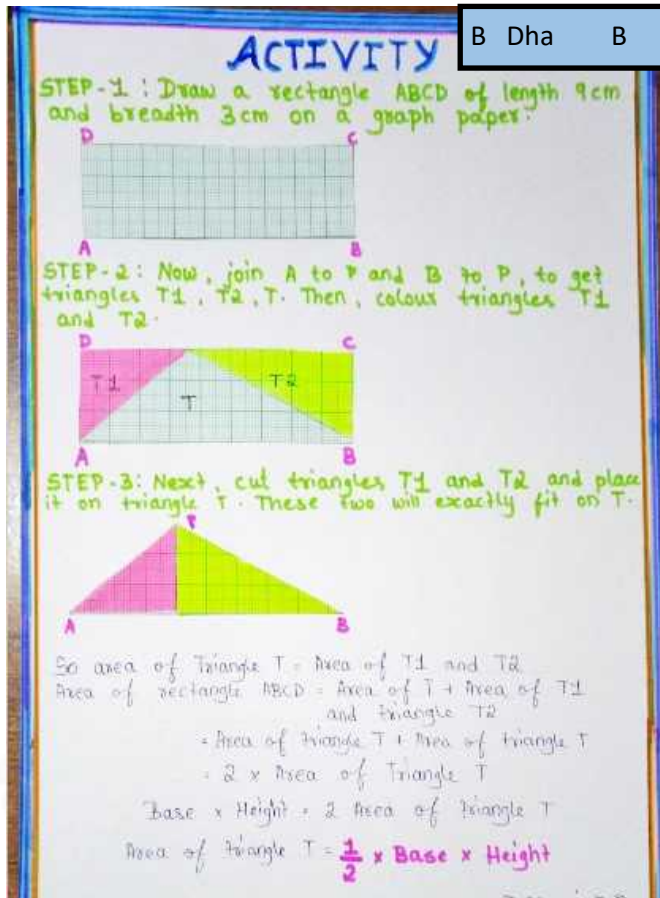 B Dha B
ACTIVITY
STEP-1: Draw a rectangle ABCD of length 9cm
and breadth 3cm on a graph paper.
D C
A B
STEP-2: Now, join A to P and B to P, to get
triangles T1, T2, T. Then, colour triangles T1
and T2.
D C
T1 T T2
A B
STEP-3: Next, cut triangles T1 and T2 and place
it on triangle T. These two will exactly fit on T.
P
A B
So area of Triangle T = Area of T1 and T2
Area of rectangle ABCD = Area of T + Area of T1
and triangle T2
= Area of triangle T + Area of triangle T
= 2 x Area of Triangle T
Base x Height = 2 Area of triangle T
Area of triangle T = 1/2 x Base x Height